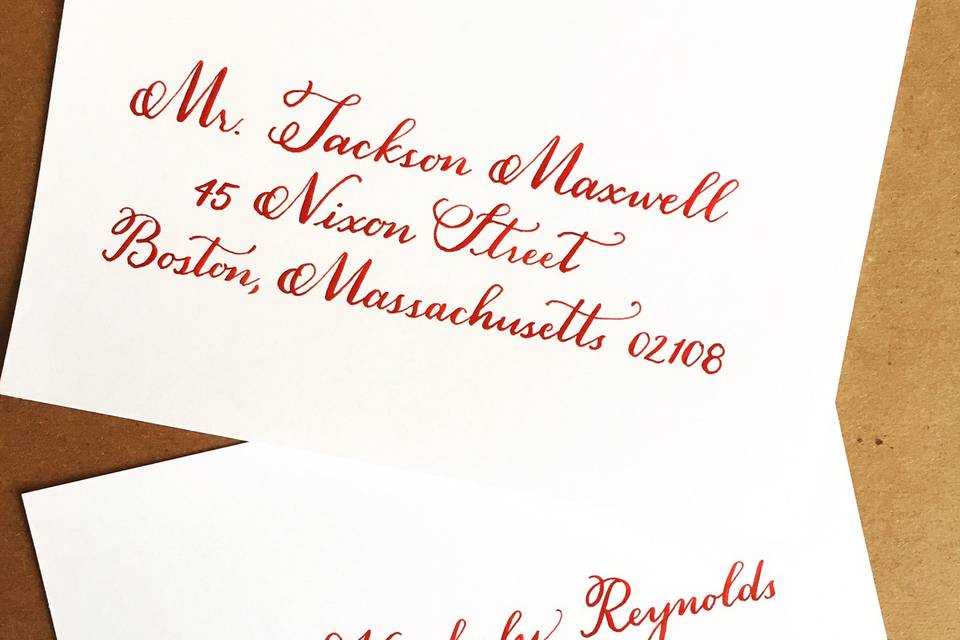 Mr. Jackson Maxwell
45 Nixon Street
Boston, Massachusetts 02108
Reynolds